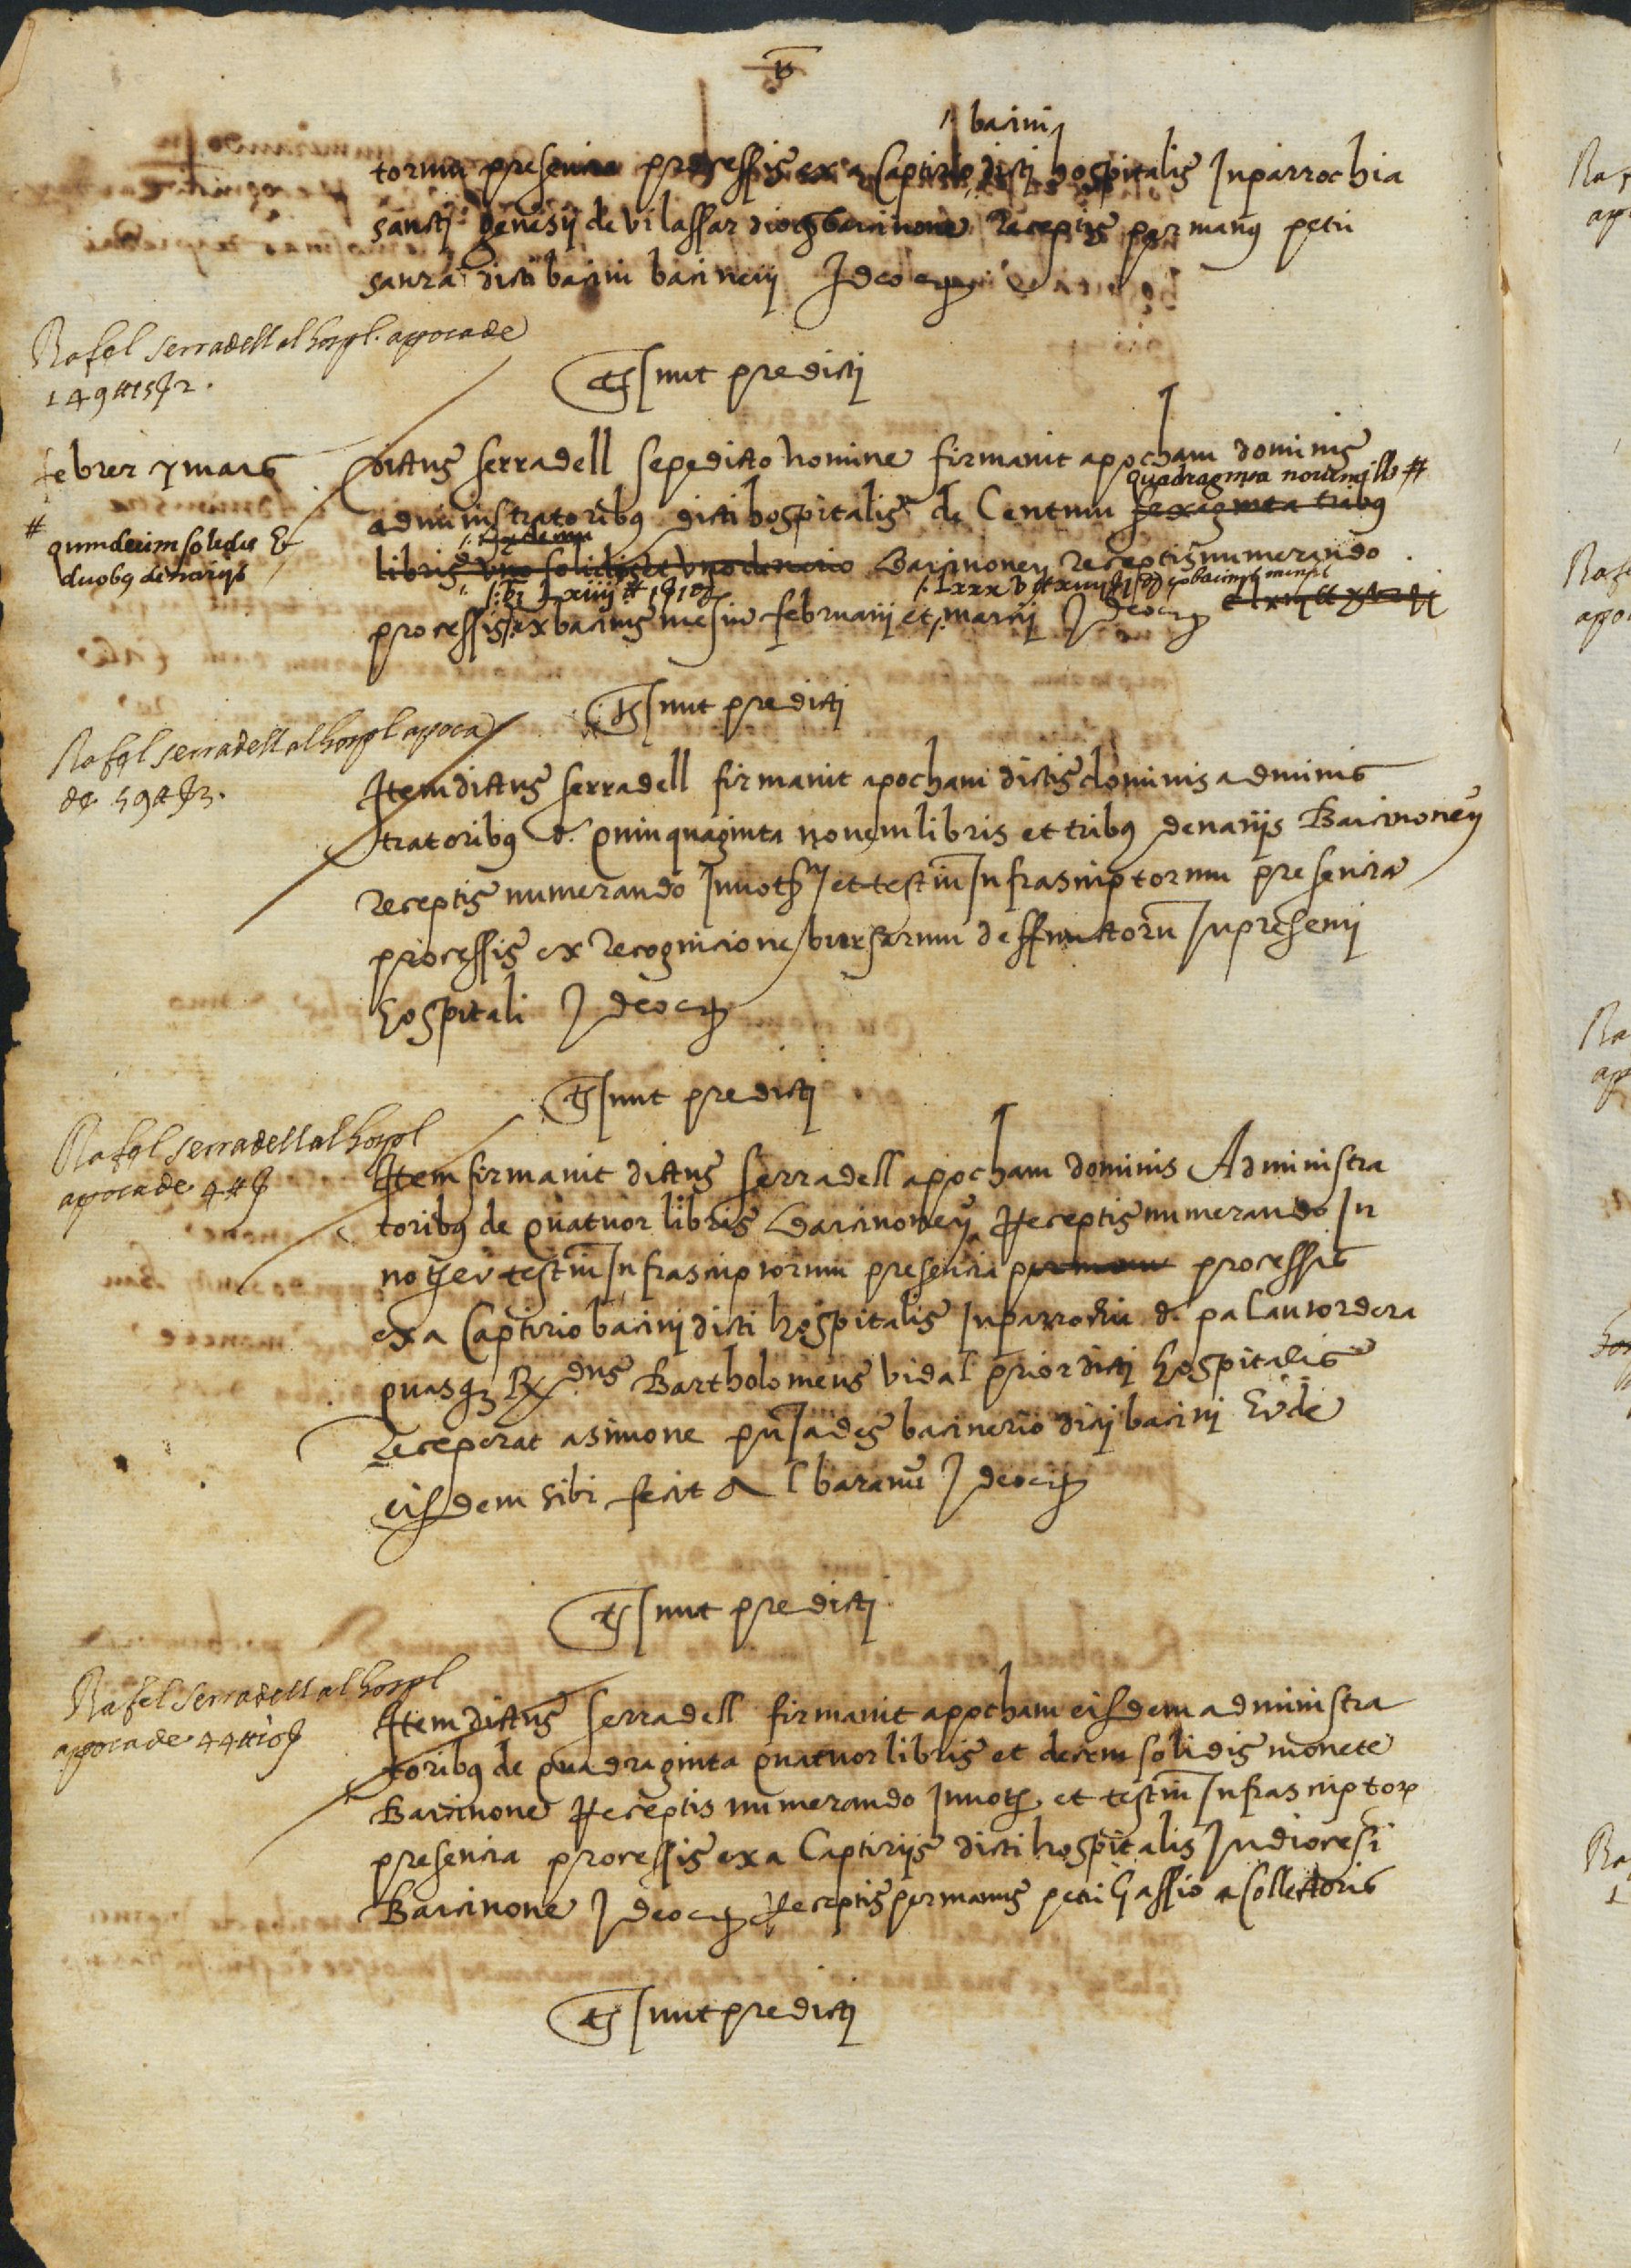 bacini
torum presencia processis ex a Captirio dicti hospitalis In parrochia
sancti genesij de vilassar dioc barcinone Receptis per manus petri
sanra dicti bacini bacinerij Ideo
Rafel serradell al hospl. apoca de
149 ## 15 2.
Ts sunt predicti
febrer y mars
dictus serradell sepedicto nomine firmavit apocham dominis
quadraginta novem #
administratoribus dicti hospitalis de Centum sexaginta tribus
# quindecim solidis &
duobus denarijs
libris uno solidis et uno denario Barcinone Receptis numerando
processis ex bacinis mesium februarij et marcij Ideo
Ts sunt predicti
Rafel serradell al hospl apoca
de 59 ## 3.
Item dictus serradell firmavit apocham dictis dominis adminis
tratoribus d. quinquaginta novem libris et tribus denarijs Barcinone
Receptis numerando In noth et testium Infrascriptorum presencia
processis ex recognicione bursarum deffunctoru In presenti
hospitali Ideo
Ts sunt predicti
Rafel serradell al hospl
apoca de 4 ##
Item firmavit dictus serradell apocham dominis Administra
toribus de quatuor libris Barcinone Receptis numerando In
not et testium Infrascriptorum presencia per manu processis
ex a Captirio bacini dicti hospitalis In parrochia d. palautordera
quasq Rx dns Bartholomeus vidal prior dicti hospitalis
Receperat a simone pujades bacinerio dicti bacini Et de
eisdem sibi fecit Albaranu Ideo
Ts sunt predicti
Rafel Serradell al hospl
apoca de 44 ## 10
Item dictus serradell firmavit apocham eisdem administra
toribus de quadraginta quatuor libris et decem solidis monete
Barcinone Receptis numerando In noth. et testium Infrascriptor
presencia processis ex a Captirijs dicti hospitalis In diocesi
Barcinone Ideo Receptis per manus petri Gassio acollectoris
Ts sunt predicti